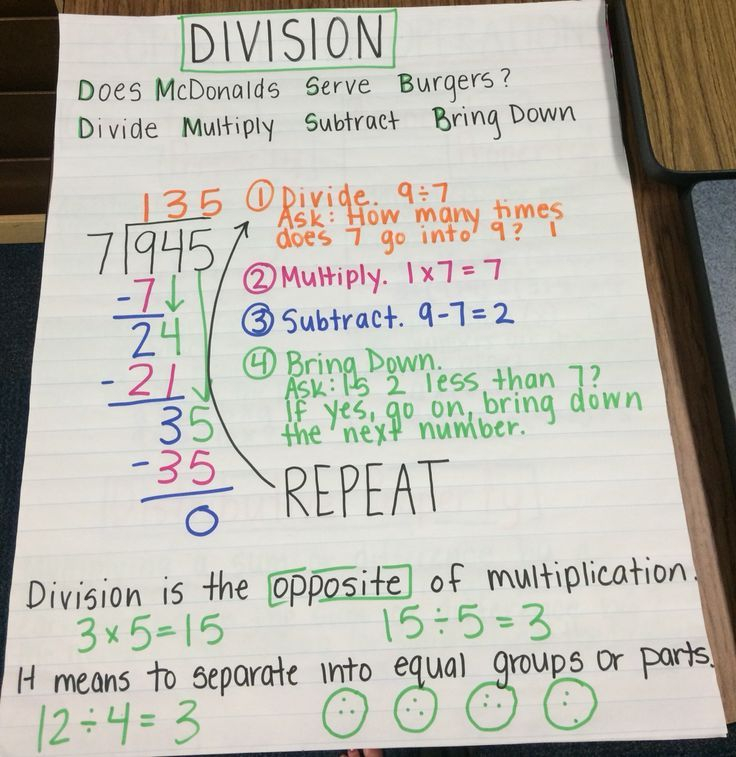 DIVISION
Does McDonalds Serve Burgers?
Divide Multiply Subtract Bring Down
135
7)945
-7
24
-21
35
-35
0
① Divide. 9÷7
Ask: How many times
does 7 go into 9? 1
② Multiply. 1x7=7
③ Subtract. 9-7=2
④ Bring Down.
Ask: Is 2 less than 7?
If yes, go on, bring down
the next number.
REPEAT
Division is the opposite of multiplication.
3x5=15 15÷5=3
It means to separate into equal groups or parts.
12÷4=3